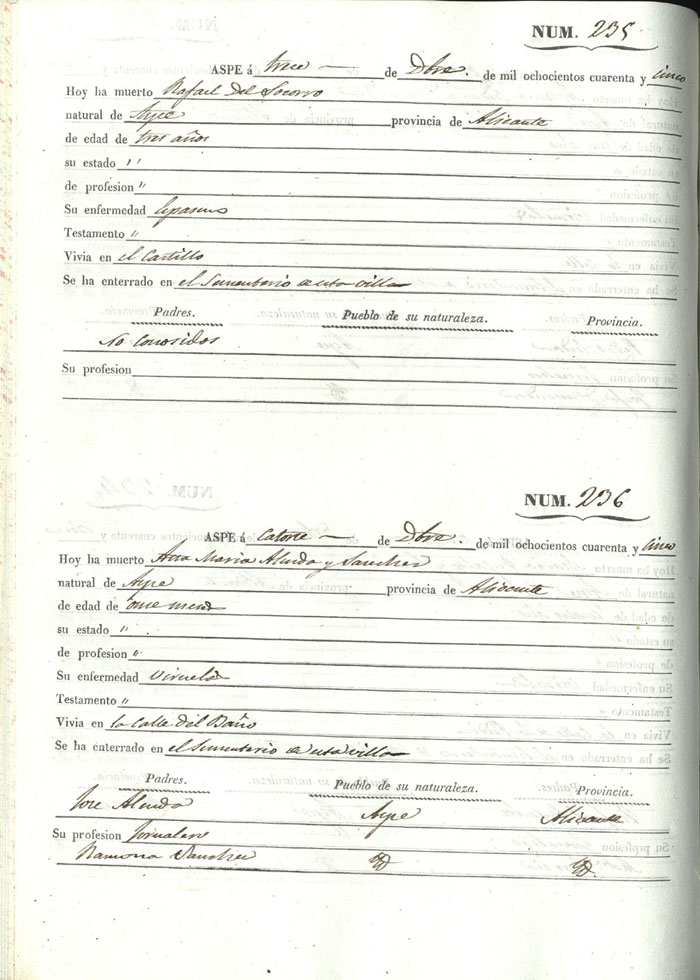 NUM. 235
ASPE á trece de Dbre. de mil ochocientos cuarenta y cinco
Hoy ha muerto Rafael Del Socorro
natural de Aspe provincia de Alicante
de edad de tres años
su estado "
de profesion "
Su enfermedad
Testamento "
Vivia en el Castillo
Se ha enterrado en el Sementerio de esta villa
Padres. Pueblo de su naturaleza. Provincia.
No conosidos
Su profesion
NUM. 236
ASPE á Catorce de Dbre. de mil ochocientos cuarenta y cinco
Hoy ha muerto Ana Maria y Sanches
natural de Aspe provincia de Alicante
de edad de onse meses
su estado "
de profesion "
Su enfermedad Viruelas
Testamento "
Vivia en la Calle del Baño
Se ha enterrado en el Sementerio de esta villa
Padres. Pueblo de su naturaleza. Provincia.
Jose Aspe Alicante
Su profesion Jornalero
Ramona Sanches